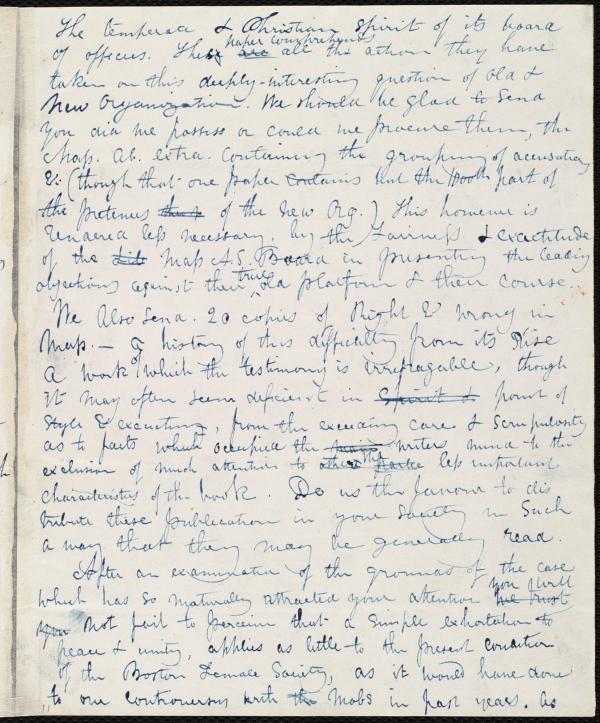 The temperate & Christian spirit of its board
of officers. These papers comprehend are all the action they have
taken on this deeply-interesting question of Old &
New Organization. We should be glad to send
you did we possess or could we procure them, the
Mass. Ab. Extra. containing the grouping of accusations
&c (though that one paper contains but the 100th part of
the pretenses of the New Org.) This however is
rendered less necessary by the fairness & exactitude
of the Mass A.S. Board in presenting the leading
objections against their true, old platform & their course.
We also send. 20 copies of Right & Wrong in
Mass. — a history of this difficulty from its rise
a work of which the testimony is irrefragable, though
it may often seem deficient in spirit & point of
style & execution, from the exceeding care & scrupulosity
as to facts which occupied the writer mind to the
exclusion of much attention to the less important
characteristics of the book. Do us the favour to dis
tribute these publication in your Society in such
a way that they may be generally read.
After an examination of the grounds of the case
which has so naturally attracted your attention we trust you will
you not fail to perceive that a simple exhortation to
peace & unity, applies as little to the present condition
of the Boston Female Society, as it would have done
to our controversy with the mobs in past years. As